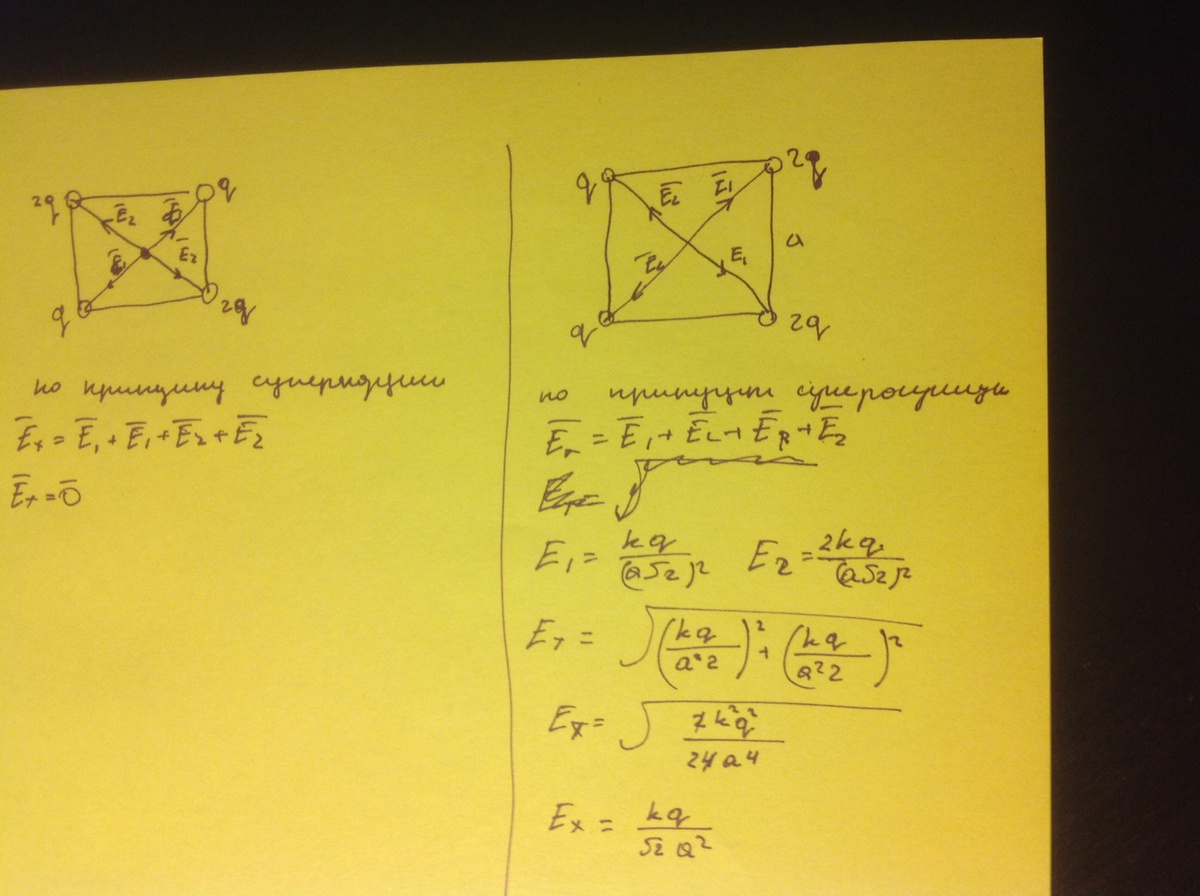 2q q
Ē₂ Ē₁
Ē₁ Ē₂
q 2q
по принципу суперпозиции
Ēₓ = Ē₁ + Ē₁ + Ē₂ + Ē₂
Ēₓ = 0̄
q 2q
Ē₂ Ē₁
a
Ē₂ E₁
q 2q
по принципу суперпозиции
Ēₓ = Ē₁ + Ē₂ + Ē₂ + Ē₂
E₁ = kq/(a√2)² E₂ = 2kq/(a√2)²
Eₓ = √((kq/a²2)² + (kq/a²2)²)
Eₓ = √(2k²q²/24a⁴)
Eₓ = kq/√2a²